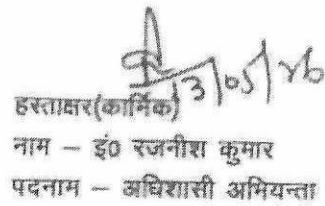 13/05/26
हस्ताक्षर(कार्मिक)
नाम – इं0 रजनीश कुमार
पदनाम – अधिशासी अभियन्ता